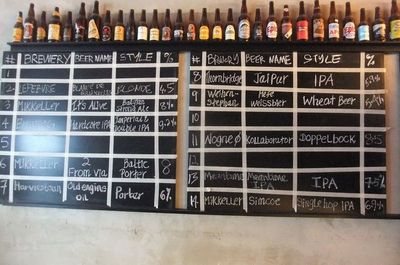 # BREWERY BEER NAME STYLE %
1
2 LEFEBVRE BLANCHE DE BLONDE 4.5
3 Mikkeller It's Alive Belgian Strong Ale 8
4 Hardcore IPA Imperial & Double IPA
5
6 MIKKELLER 2 From via Baltic Porter 8
7 Harviestoun Old engine OIL Porter 6%
# BREWERY BEER NAME STYLE %
8 Thornbridge Jaipur IPA
9 Weihen-Stephan Hefe Weissbier Wheat Beer
10
11 Nogne Ø Kollaborator Doppelbock 8.5
12
13 Meantime Meantime IPA IPA 7.5%
14 Mikkeller Simcoe Single hop IPA 6.9%